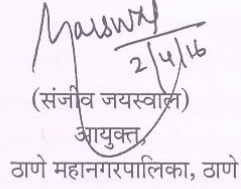 2/4/16
(संजीव जयस्वाल)
आयुक्त,
ठाणे महानगरपालिका, ठाणे